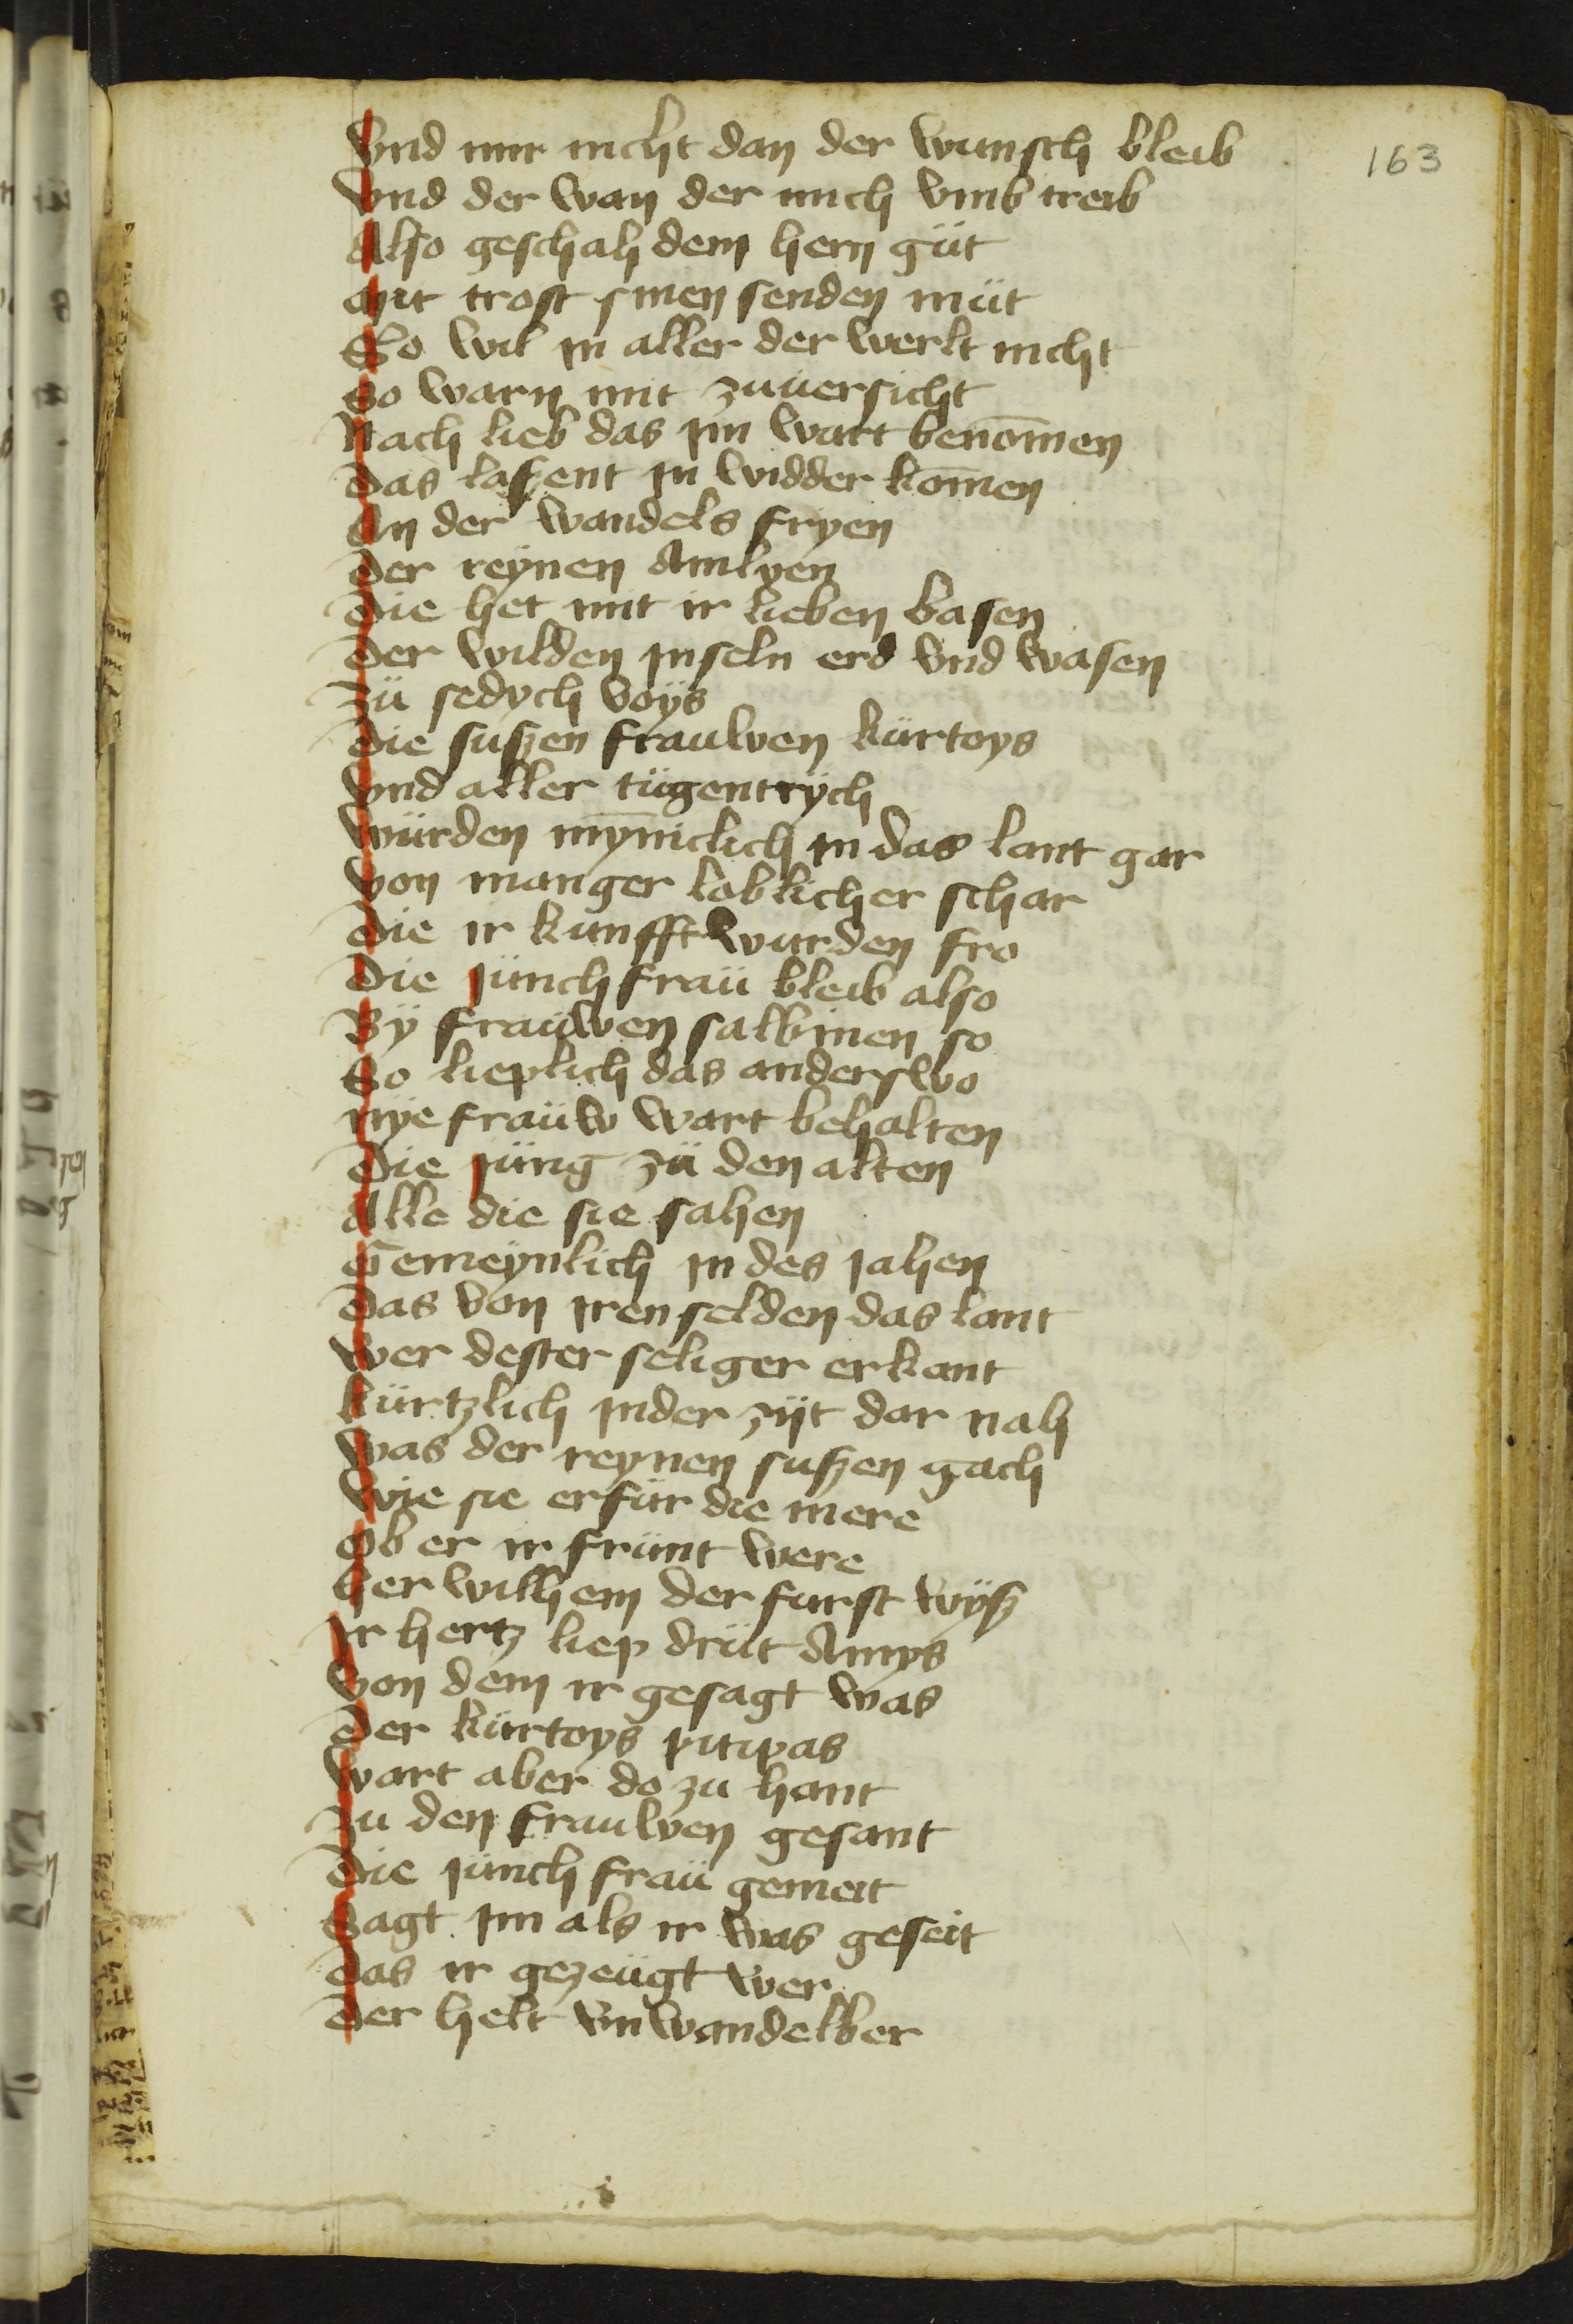 163
Vnd mir nicht dan der wunsch bleib
Vnd der wan der mich vmb treib
Also geschah dem hern güt
Mit trost sinen senden müt
So wil in aller der werlt nicht
So warn mit zuuersicht
Nach lieb das im wart benom̄en
Das laszent in widder kom̄en
An der wandels fryen
Der reÿnen Amlyen
Die het mit ir lieben basen
Der wilden inseln erd vnd wasen
Zü sedych voÿs
Die suszen frauwen kürtoys
Vnd aller tügentrÿch
Würden mȳniclich in das lant gar
Von manger loblicher schar
Die ir kunfft wurden fro
Die junchfraü bleib also
Bÿ fraüwen salbinen so
So lieplich das anderswo
Nÿe fraüw wart behalten
Die jüng zü den alten
Alle die sie sahen
Gemeÿnlich in des jahen
Das von iren selden das lant
Wer dester seliger erkant
Kürtzlich in der zÿt dar nah
Was der reynen suszen gach
Wie sie erfür die mere
Ob er ir frünt were
Her wilhem der furst wÿsz
Ir hertz liep drüt Amys
Von dem ir gesagt was
Der kürtoys pitipas
Wart aber do zu hant
Zu den frauwen gesant
Die junchfraü gemeit
Sagt im als ir was geseit
Das ir gezeügt wer
Der helt vnwandelber